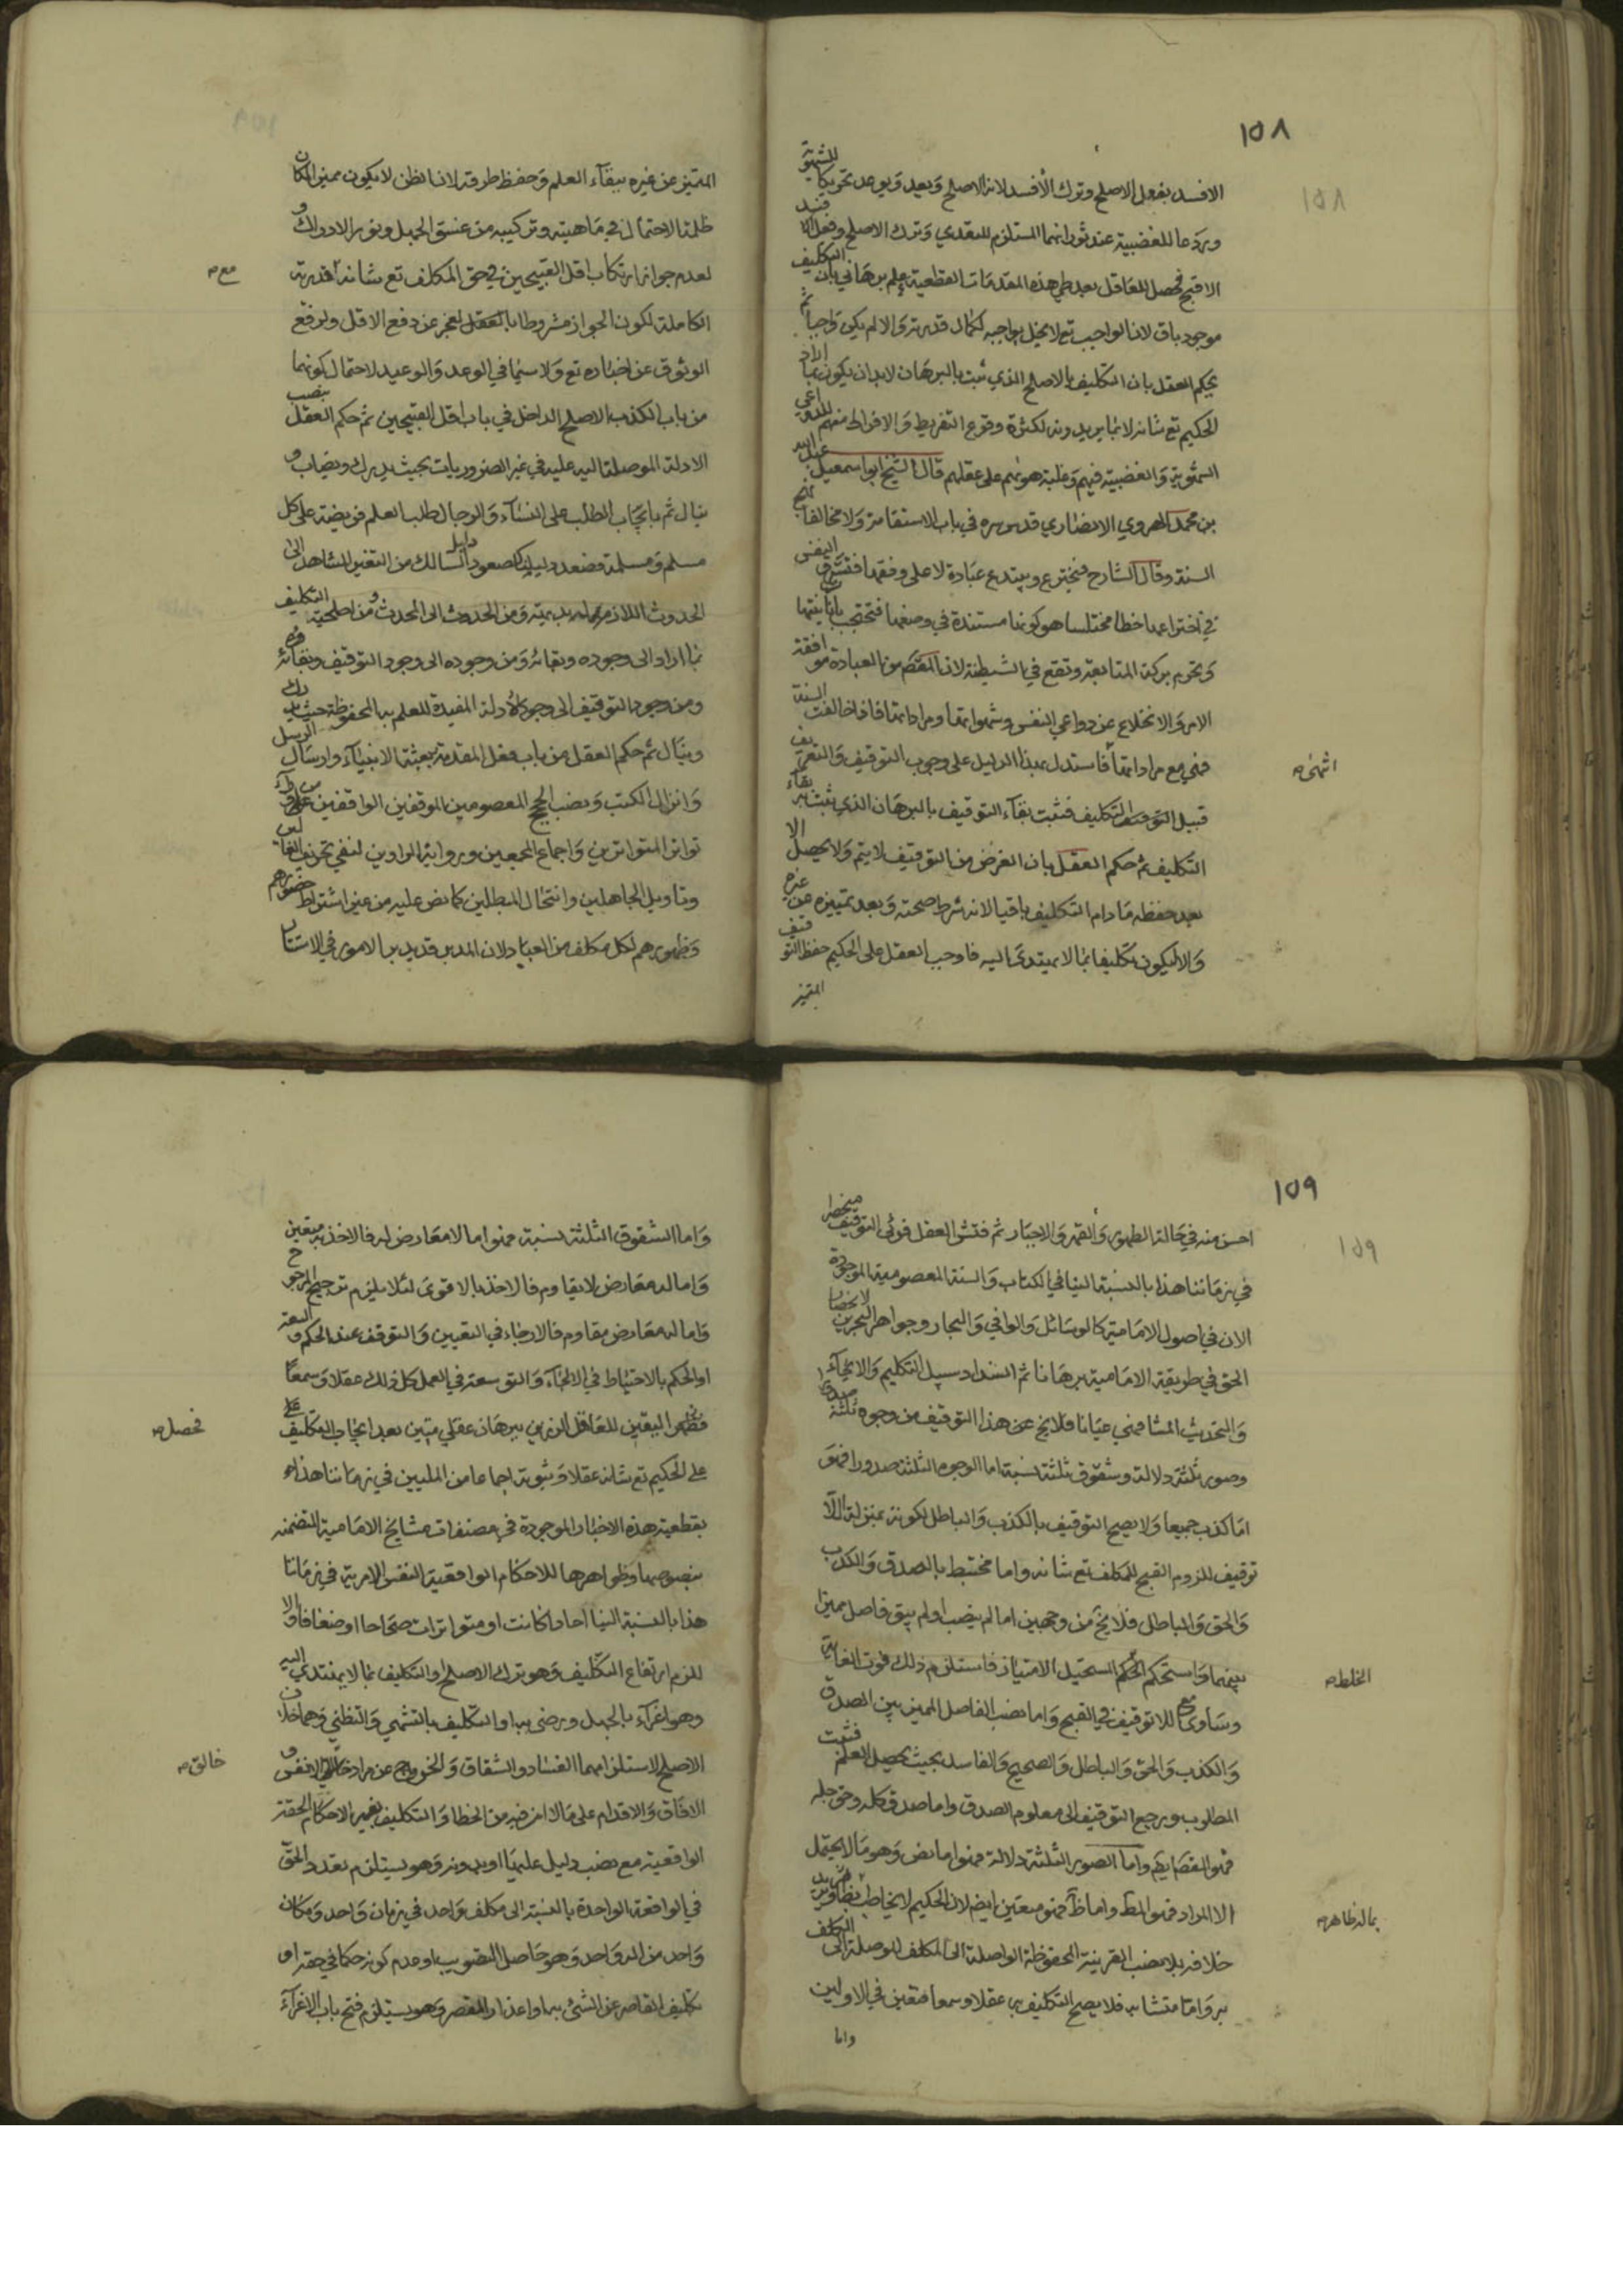 ١٥٨
الافسد بفعل الاصلح وترك الأفسد لانه الاصلح وبعد ويوعد تحريكا للشهوية
وردعا للغضبية عند ثورانهما المستلزم للتعدي وترك الاصلح وفعل
الاقبح فحصل للعاقل بعد طي هذه المقدمات القطعية علم برهاني بان التكليف
موجود باق لان الواجب تع لا يخل بواجبه لكمال قدرته والا لم يكن واجبا ثم
يحكم العقل بان التكليف بالاصلح الذي ثبت بالبرهان لابد ان يكون بما اراد
الحكيم تع شانه لا بما يريدونه لكثرة وقوع التفريط والافراط منهم للدواعي
الشهوية والغضبية فيهم وغلبة هويهم على عقلهم قال الشيخ ابو اسمعيل عبد الله
بن محمد الهروي الانصاري قدس سره في باب الاستقامة ولا مخالفا نهج
السنة وقال الشارح فيخترع ويبتدع عبادة لا على وفقها فتسترق النفس
في اختراعها خطا مختلسا هو كونها مستندة في وضعها فتحتجب بانانيتها
وتحرم بركة المتابعة وتقع في الشيطنة لان المقصود من العبادة موافقة
الامر والانخلاع عن دواعي النفس وشهواتها ومراداتها فاذا خالفت السنة
فهي مع مراداتها فاستدل بهذا الدليل على وجوب التوقيف والتعريف
قبل التكليف فثبت بقاء التوقيف بالبرهان الذي يثبت به بقاء
التكليف ثم حكم العقل بان الغرض من التوقيف لا يتم ولا يحصل الا
بعد حفظه مادام التكليف باقيا لانه شرط صحته وبعد تمييزه عن غيره
والا ليكون تكليفا بما لا يهتدى اليه فاوجب العقل على الحكيم حفظ التوقيف
المتميز
اثمنى ص
المتميز عن غيره ببقاء العلم وحفظ طرقه لان الظن لا يكون مميزا لمكان
ظلمة الاحتمال في ماهيته وتركيبه من غسق الجهل ونور الادراك و
لعدم جواز ارتكاب اقل القبيحين في حق المكلف تع شانه قدرته
مع ص
الكاملة لكون الجواز مشروطا بالعقل لعجز عن دفع الاقل ولرفع
الوثوق عن اخباره تع ولا سيما في الوعد والوعيد لاحتمال كونهما
من باب الكذب الاصلح الداخل في باب اقل القبيحين ثم حكم العقل بنصب
الادلة الموصلة اليه عليه في غير الضروريات بحيث يدرك ويصاب و
ينال ثم بايجاب الطلب على النساء والرجال طلب العلم فريضة على كل
مسلم ومسلمة فصعد دليل كصعود السالك من التغير المشاهد الى
الحدوث اللازم له ببديهيته ومن الحدوث الى المحدث ومن اصلحية التكليف
بما اراد الى وجوده وبقائه ومن وجوده الى وجود التوقيف وبقائه
ومن وجود التوقيف الى وجود الادلة المفيدة للعلم به المحفوظة حيث يدرك
وينال ثم حكم العقل من باب فعل المقدمة ببعثة الانبياء وارسال الرسل
وانزال الكتب ونصب الحجج المعصومين الموقفين الواقفين على
تواتر المتواترين واجماع المجمعين ورواية الراوين لنفي تحريف الغالين
وتاويل الجاهلين وانتحال المبطلين كما نص عليه من غير اشتراط حضورهم
وظهورهم لكل مكلف من العباد لان المدبر قد يدبر الامور في الاستتار
١٥٩
احسن منه في حالة الظهور والقهر والاجبار ثم فتش العقل فرئى التوقيف منحصرا
في زماننا هذا بالنسبة الينا في الكتاب والسنة المعصومية الموجودة
الان في اصول الامامية كالوسائل والوافي والبحار وجواهر البحرين لانحصار
الحق في طريقة الامامية برهانا ثم انسداد سبيل التكليم والايحاء
والتحديث المشافهي عيانا فلا يخ عن هذا التوقيف من وجوه ثلثة صدورا
وصور ثلثة دلالة وشقوق ثلثة نسبة اما الوجوه الثلثة صدورا فهو
اما كذب جميعا ولا يصح التوقيف بالكذب والباطل لكونه بمنزلة اللا
توقيف للزوم القبح للمكلف تع شانه واما مختلط بالصدق والكذب
والحق والباطل فلا يخ من وجهين اما لم ينصب او لم يبق فاصل مميز
بينهما واستحكم المستحيل الامتياز فاستلزم ذلك فوت الغاية
الخلط ص
وساوى اللاتوقيف في القبح واما نصب الفاصل المميز بين الصدق
والكذب والحق والباطل والصحيح والفاسد بحيث يحصل العلم فثبت
المطلوب ويرجع التوقيف الى معلوم الصدق واما صدق كله وحق جله
فهو المقصد ايضا واما الصور الثلثة دلالة فهو اما نص وهو ما لا يحتمل
الا المراد فهو المط واما ظ فهو متعين ايضا لان الحكيم لا يخاطب
بما له ظاهر ص
خلافه بلا نصب القرينة المحفوظة الواصلة الى المكلف الموصلة الى
به واما متشابه فلا يصح التكليف به عقلا وسمعا فتعين في الاولين
واما
واما الشقوق الثلثة نسبة فهو اما لا معارض له فالاخذ به متعين
واما له معارض لا يقاوم فالاخذ بالاقوى لئلا يلزم ترجيح المرجوح
واما له معارض مقاوم فالارجاء في التعيين والتوقف عند الحكم
او الحكم بالاحتياط في الافتاء والتوسعة في العمل كل ذلك عقلا وسمعا
فظهر اليقين للعاقل الرزين ببرهان عقلي متين بعد ايجاب التكليف
فحصل ص
على الحكيم تع شانه عقلا وثبوته اجماعا من المليين في زماننا هذا
بقطعية هذه الاخبار الموجودة في مصنفات مشايخ الامامية المتضمنة
بنصوصها وظواهرها للاحكام الواقعية النفس الامرية في زماننا
هذا بالنسبة الينا احادا كانت او متواترات صحاحا او ضعافا والا
للزم ارتفاع التكليف وهو ترك الاصلح او التكليف بما لا يهتدى اليه
وهو اغراء بالجهل ورضى به او التكليف بالتشهي والتظني وهما خلاف
الاصلح لاستلزامهما الفساد والشقاق والخروج عن مراد
خالق ص
الافاق والاقدام على ما لا امن فيه من الخطا والتكليف بغير الاحكام الحقة
الواقعية مع نصب دليل عليها او بدونه وهو يستلزم تعدد الحق
في الواقعة الواحدة بالنسبة الى مكلف واحد في زمان واحد ومكان
واحد من اله واحد وهو حاصل التصويب او عدم كونه حكما في حقه او
تكليف القاصر عن الشئ به او اعذار المقصر وهو يستلزم فتح باب الاغراء